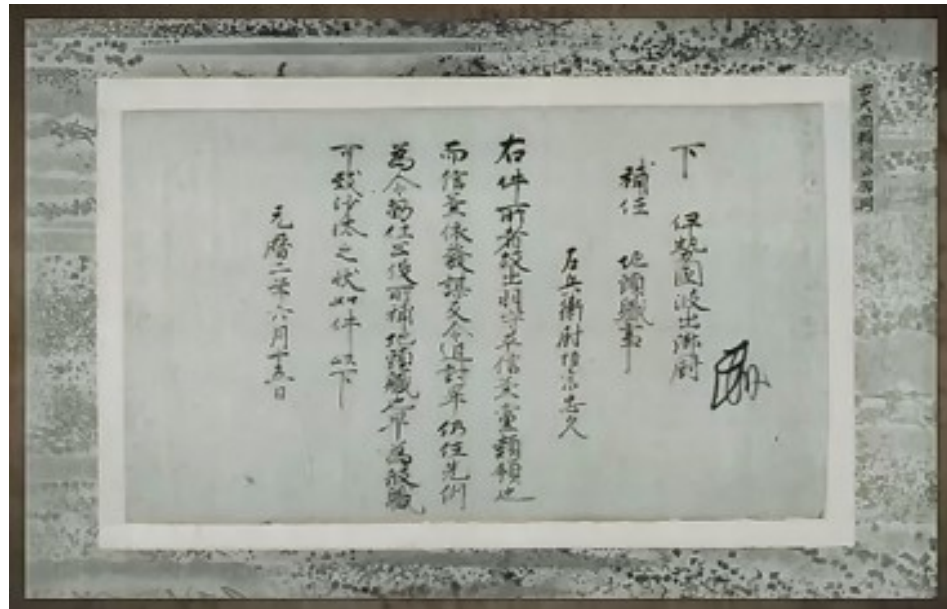 下　伊勢國波出御厨
補任　地頭職事
左兵衛尉惟宗忠久
右件所者故出羽守平信兼黨類領也
而信兼依發謀反令追討畢仍任先例
為令勤仕公役所補地頭職也早為彼職
可致沙汰之状如件以下
元暦二年六月十五日